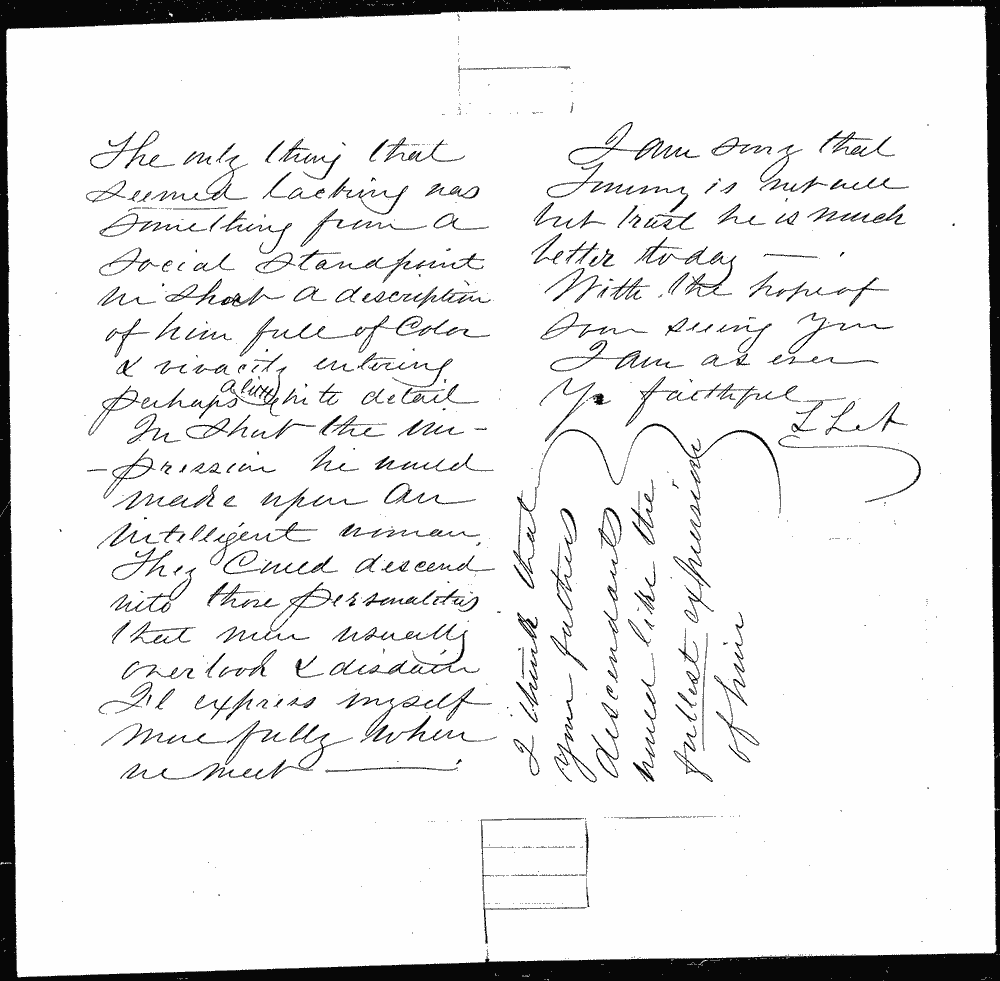 The only thing that
seemed lacking was
something from a
social standpoint
in short a description
of him full of Color
& vivacity entering
perhaps a little into detail
In short the im-
-pression he would
made upon an
intelligent woman.
They Could descend
into those personalities
that men usually
overlook & disdain
I'l express myself
more fully when
we meet ——.
I am sorry that
Tommy is not well
but trust he is much
better today ——.
With the hope of
soon seeing you
I am as ever
Yr faithful
I think that
your fathers
descendants
would like the
fullest expression
of him